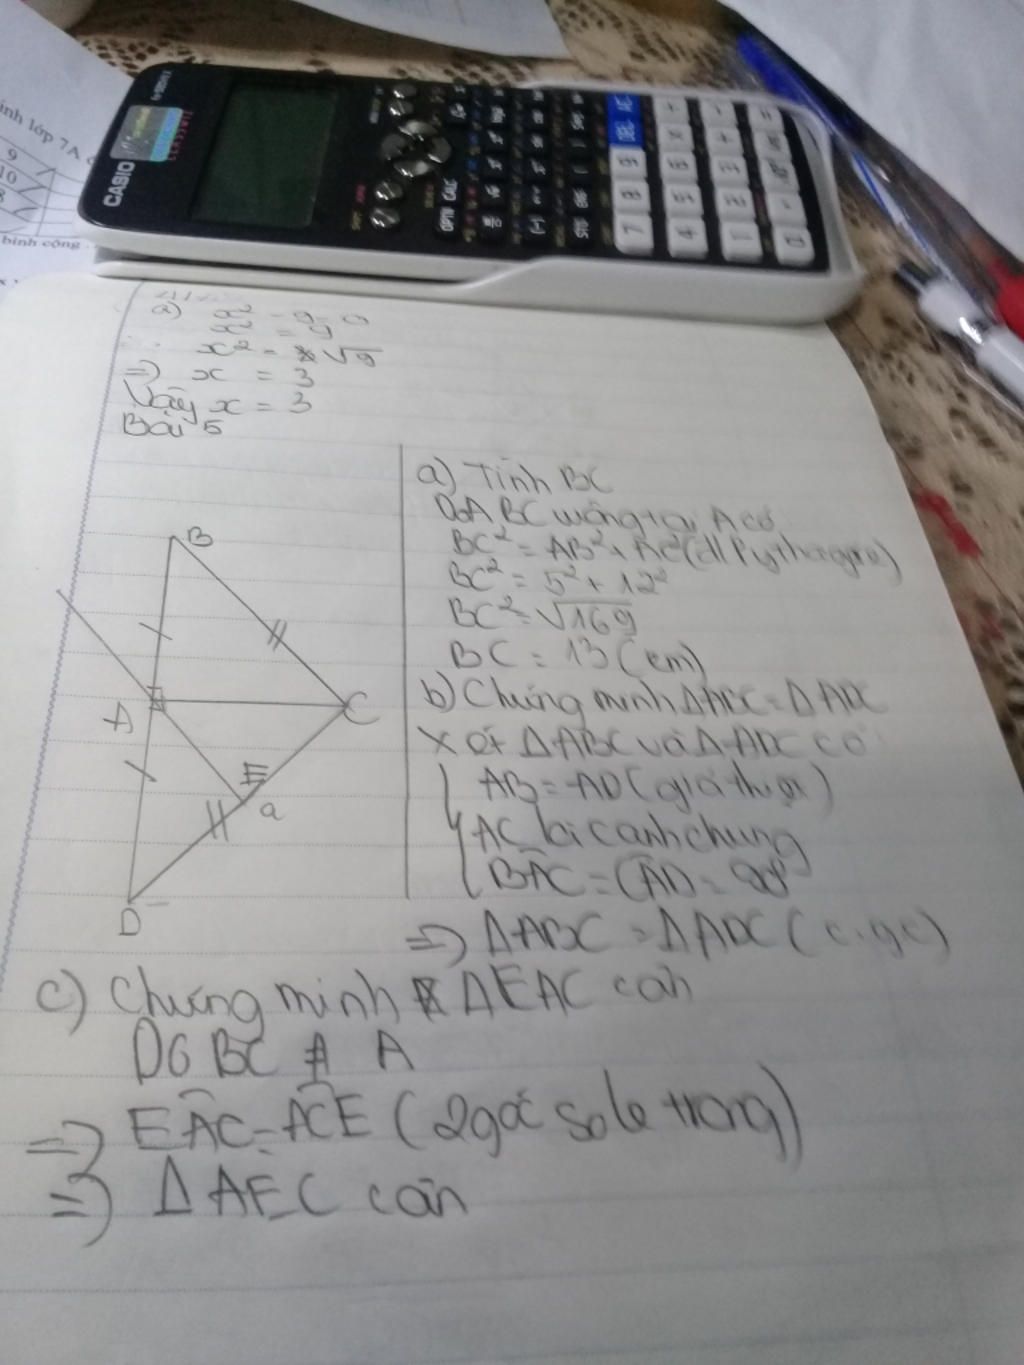 CASIO
CLASSWIZ
OPTN CALC
STO ENG
DEL AC
7 8 9
4 5 6 ×
1 2 3 +
0
ính lớp 7A
9
10
8
bình cộng
a) x² - 9 = 0
x² = 9
x² = √9
=> x = 3
Vậy x = 3
Bài 5
B
A
C
E
a
D
a) Tính BC
Do ABC vuông tại A có
BC² = AB² + AC² (đl Pythagore)
BC² = 5² + 12²
BC² = √169
BC = 13 (cm)
b) Chứng minh ΔABC = ΔADC
Xét ΔABC và ΔADC có
AB = AD (giả thiết)
AC là cạnh chung
BAC = CAD = 90°
=> ΔABC = ΔADC (c.g.c)
c) Chứng minh ΔEAC cân
Do BC A
=> EAC = ACE (2 góc so le trong)
=> ΔAEC cân